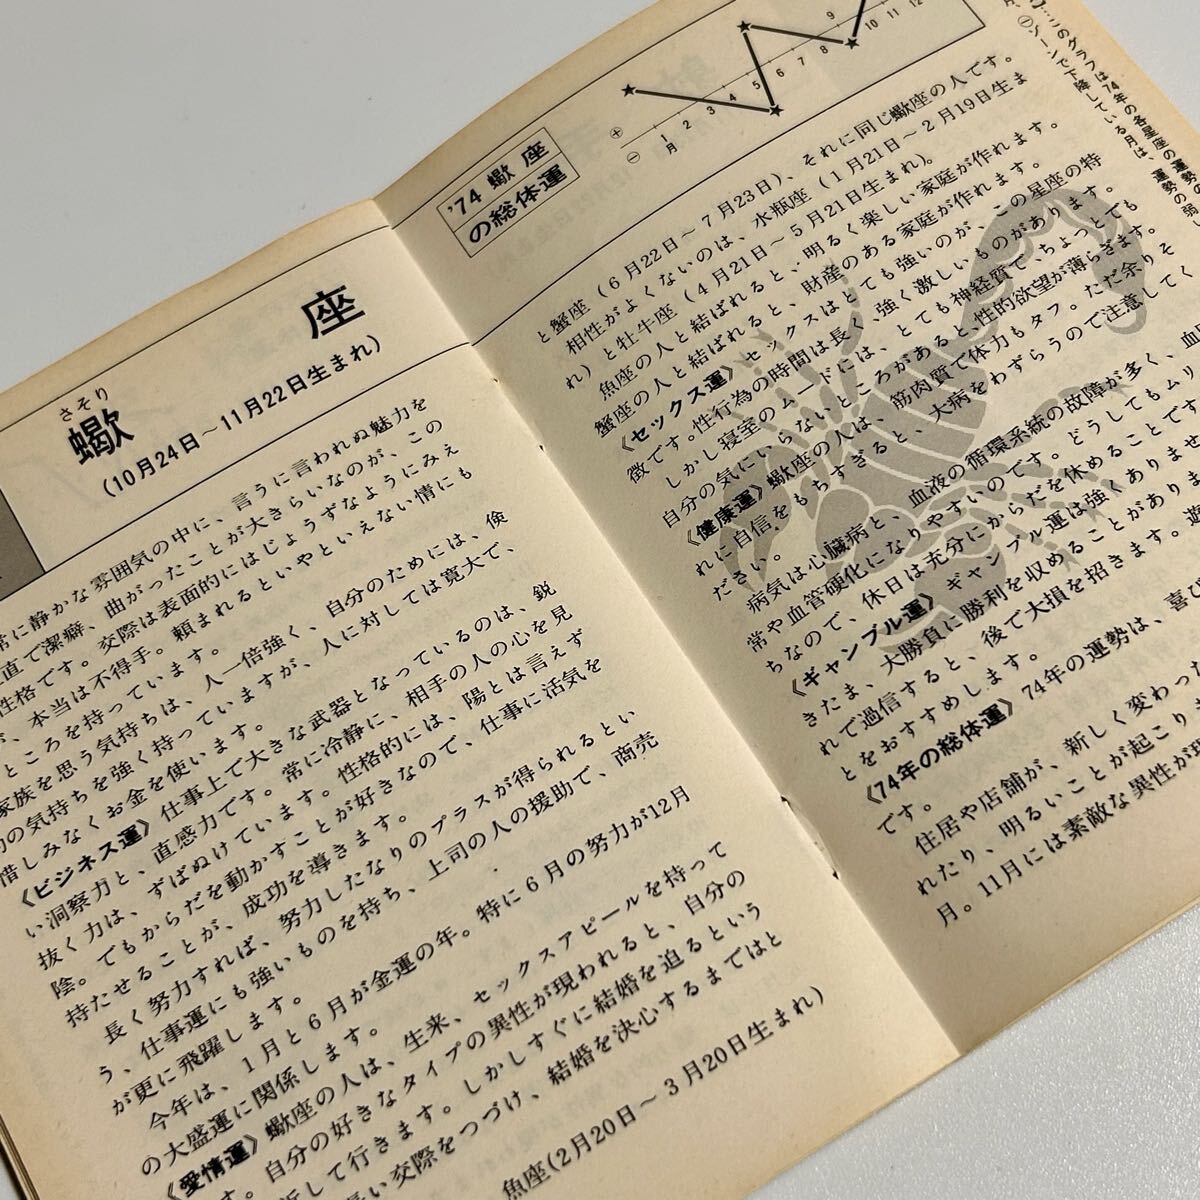 さそり
蠍 座
(10月24日～11月22日生まれ)
常に静かな雰囲気の中に、言うに言われぬ魅力を
直で潔癖、曲がったことが大きらいなのが、この
性格です。交際は表面的にはじょうずなようにみえ
が、本当は不得手。頼まれるといやといえない情にも
ところを持っています。
家族を思う気持ちは、人一倍強く、自分のためには、倹
約の気持ちを強く持っていますが、人に対しては寛大で、
惜しみなくお金を使います。
《ビジネス運》仕事上で大きな武器となっているのは、鋭
い洞察力と、直感力です。常に冷静に、相手の人の心を見
抜く力は、ずばぬけています。性格的には、陽とは言えず
陰。でもからだを動かすことが好きなので、仕事に活気を
持たせることが、成功を導きます。
長く努力すれば、努力したなりのプラスが得られるとい
う、仕事運にも強いものを持ち、上司の人の援助で、商売
が更に飛躍します。
今年は、1月と6月が金運の年。特に6月の努力が12月
の大盛運に関係します。
《愛情運》蠍座の人は、生来、セックスアピールを持って
す。自分の好きなタイプの異性が現われると、自分の
して行きます。しかしすぐに結婚を迫るという
長い交際をつづけ、結婚を決心するまではと
魚座(2月20日～3月20日生まれ)
'74 蠍座
の総体運
⊕
⊖
1月 2 3 4 5 6 7 8 9 10 11 12
…このグラフは74年の各星座の運勢の強
⊖ゾーンで下降している月は、運勢の
と蟹座（6月22日～7月23日）、それに同じ蠍座の人です。
相性がよくないのは、水瓶座（1月21日～2月19日生ま
れ）と牡牛座（4月21日～5月21日生まれ）。
魚座の人と結ばれると、明るく楽しい家庭が作れます。
蟹座の人と結ばれると、財産のある家庭が作れます。
《セックス運》セックスはとても強いのが、この星座の特
徴です。性行為の時間は長く、強く激しいものがあります。
しかし寝室のムードには、とても神経質で、ちょっとでも
自分の気にいらないところがあると、性的欲望が薄らぎます。
《健康運》蠍座の人は、筋肉質で体力もタフ。ただ余りそ
れに自信をもちすぎると、大病をわずらうので注意してく
ださい。
病気は心臓病と、血液の循環系統の故障が多く、血
常や血管硬化になりやすいのです。どうしてもムリ
ちなので、休日は充分にからだを休めることです
《ギャンブル運》ギャンブル運は強くありませ
きたま、大勝負に勝利を収めることがありま
れで過信すると、後で大損を招きます。遊
とをおすすめします。
《74年の総体運》74年の運勢は、喜び
です。
住居や店舗が、新しく変わった
れたり、明るいことが起こりま
月。11月には素敵な異性が現